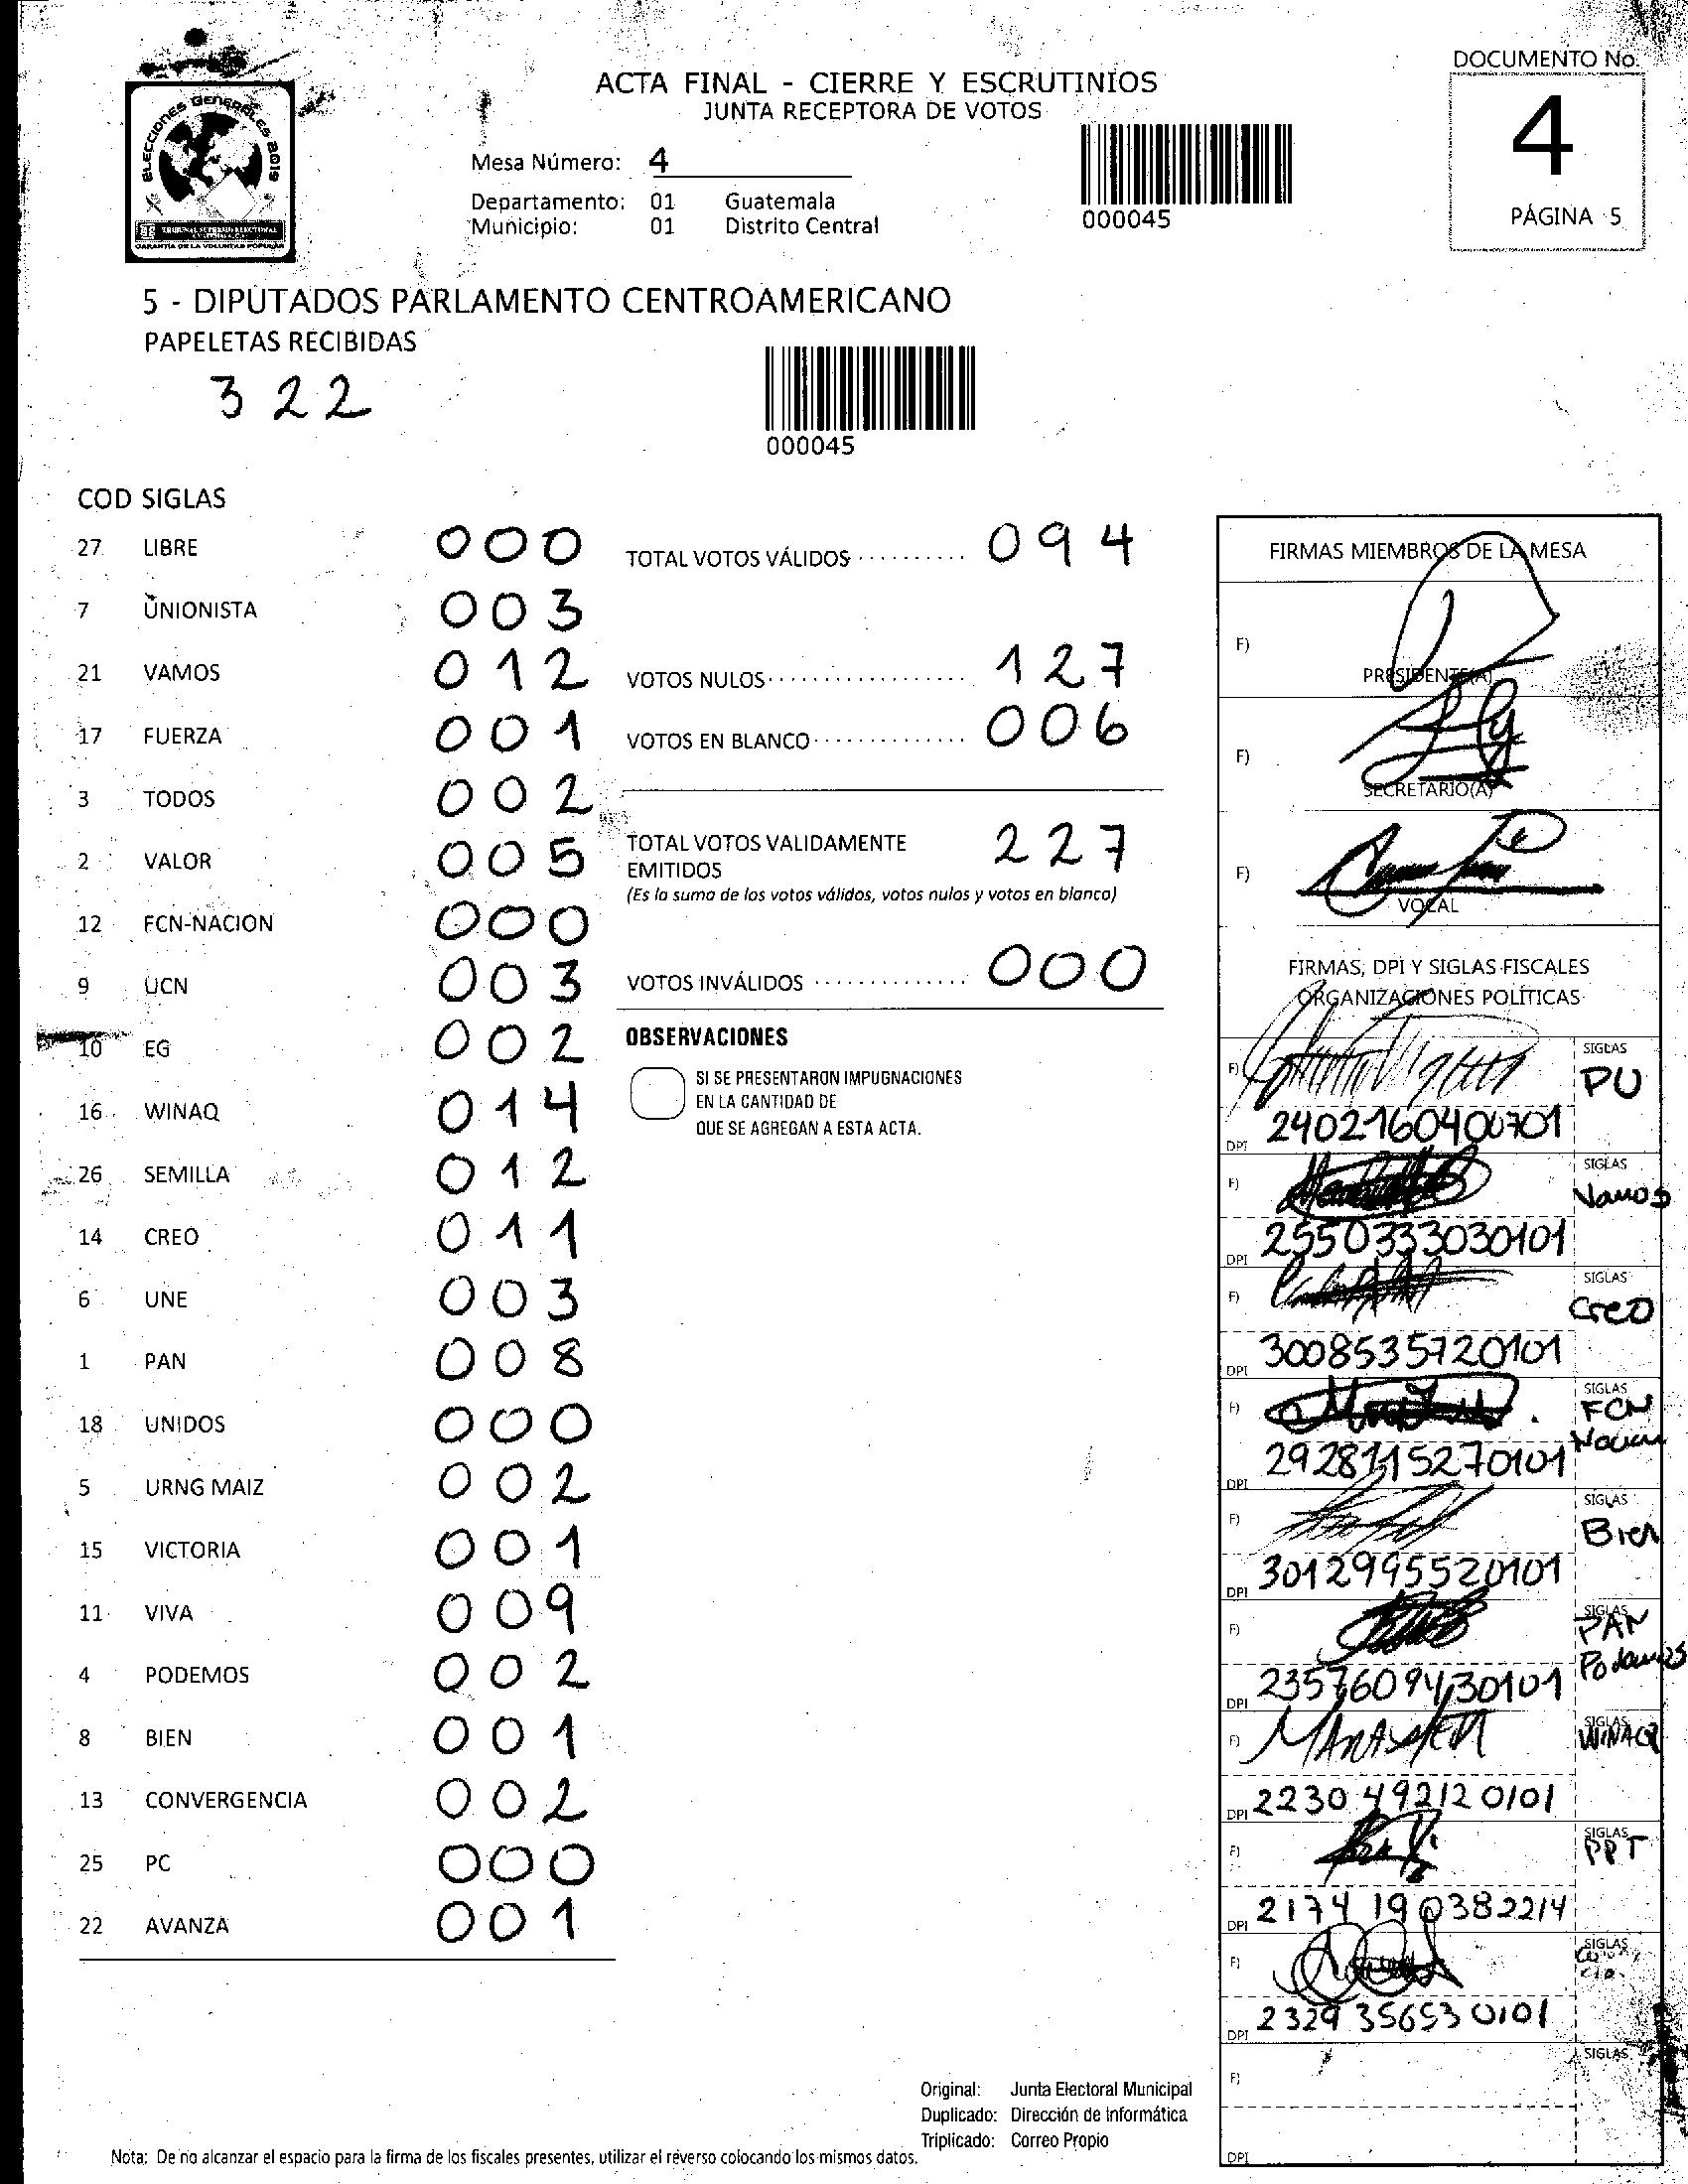 DOCUMENTO No.
4
PÁGINA 5
ELECCIONES GENERALES 2019
TRIBUNAL SUPREMO ELECTORAL
GARANTÍA DE LA VOLUNTAD POPULAR
ACTA FINAL - CIERRE Y ESCRUTINIOS
JUNTA RECEPTORA DE VOTOS
Mesa Número: 4
Departamento: 01 Guatemala
Municipio: 01 Distrito Central
000045
5 - DIPUTADOS PARLAMENTO CENTROAMERICANO
PAPELETAS RECIBIDAS
322
000045
COD SIGLAS
27 LIBRE 000
7 UNIONISTA 003
21 VAMOS 012
17 FUERZA 001
3 TODOS 002
2 VALOR 005
12 FCN-NACION 000
9 UCN 003
10 EG 002
16 WINAQ 014
26 SEMILLA 012
14 CREO 011
6 UNE 003
1 PAN 008
18 UNIDOS 000
5 URNG MAIZ 002
15 VICTORIA 001
11 VIVA 009
4 PODEMOS 002
8 BIEN 001
13 CONVERGENCIA 002
25 PC 000
22 AVANZA 001
TOTAL VOTOS VÁLIDOS 094
VOTOS NULOS 127
VOTOS EN BLANCO 006
TOTAL VOTOS VALIDAMENTE
EMITIDOS 227
(Es la suma de los votos válidos, votos nulos y votos en blanco)
VOTOS INVÁLIDOS 000
OBSERVACIONES
SI SE PRESENTARON IMPUGNACIONES
EN LA CANTIDAD DE
QUE SE AGREGAN A ESTA ACTA.
FIRMAS MIEMBROS DE LA MESA
F)
PRESIDENTE(A)
F)
SECRETARIO(A)
F)
VOCAL
FIRMAS, DPI Y SIGLAS FISCALES
ORGANIZACIONES POLÍTICAS
F) SIGLAS
PU
DPI 2402160400701
F) SIGLAS
Vamos
DPI 2550333030101
F) SIGLAS
Creo
DPI 3008535720101
F) SIGLAS
FCN
Nacion
DPI 2928115270101
F) SIGLAS
Bien
DPI 3012995520101
F) SIGLAS
PAN
Podemos
DPI 2357609430101
F) SIGLAS
WINAQ
DPI 2230492120101
F) SIGLAS
PPT
DPI 2174190382214
F) SIGLAS
DPI 2329356530101
F) SIGLAS
DPI
Original: Junta Electoral Municipal
Duplicado: Dirección de Informática
Triplicado: Correo Propio
Nota: De no alcanzar el espacio para la firma de los fiscales presentes, utilizar el reverso colocando los mismos datos.